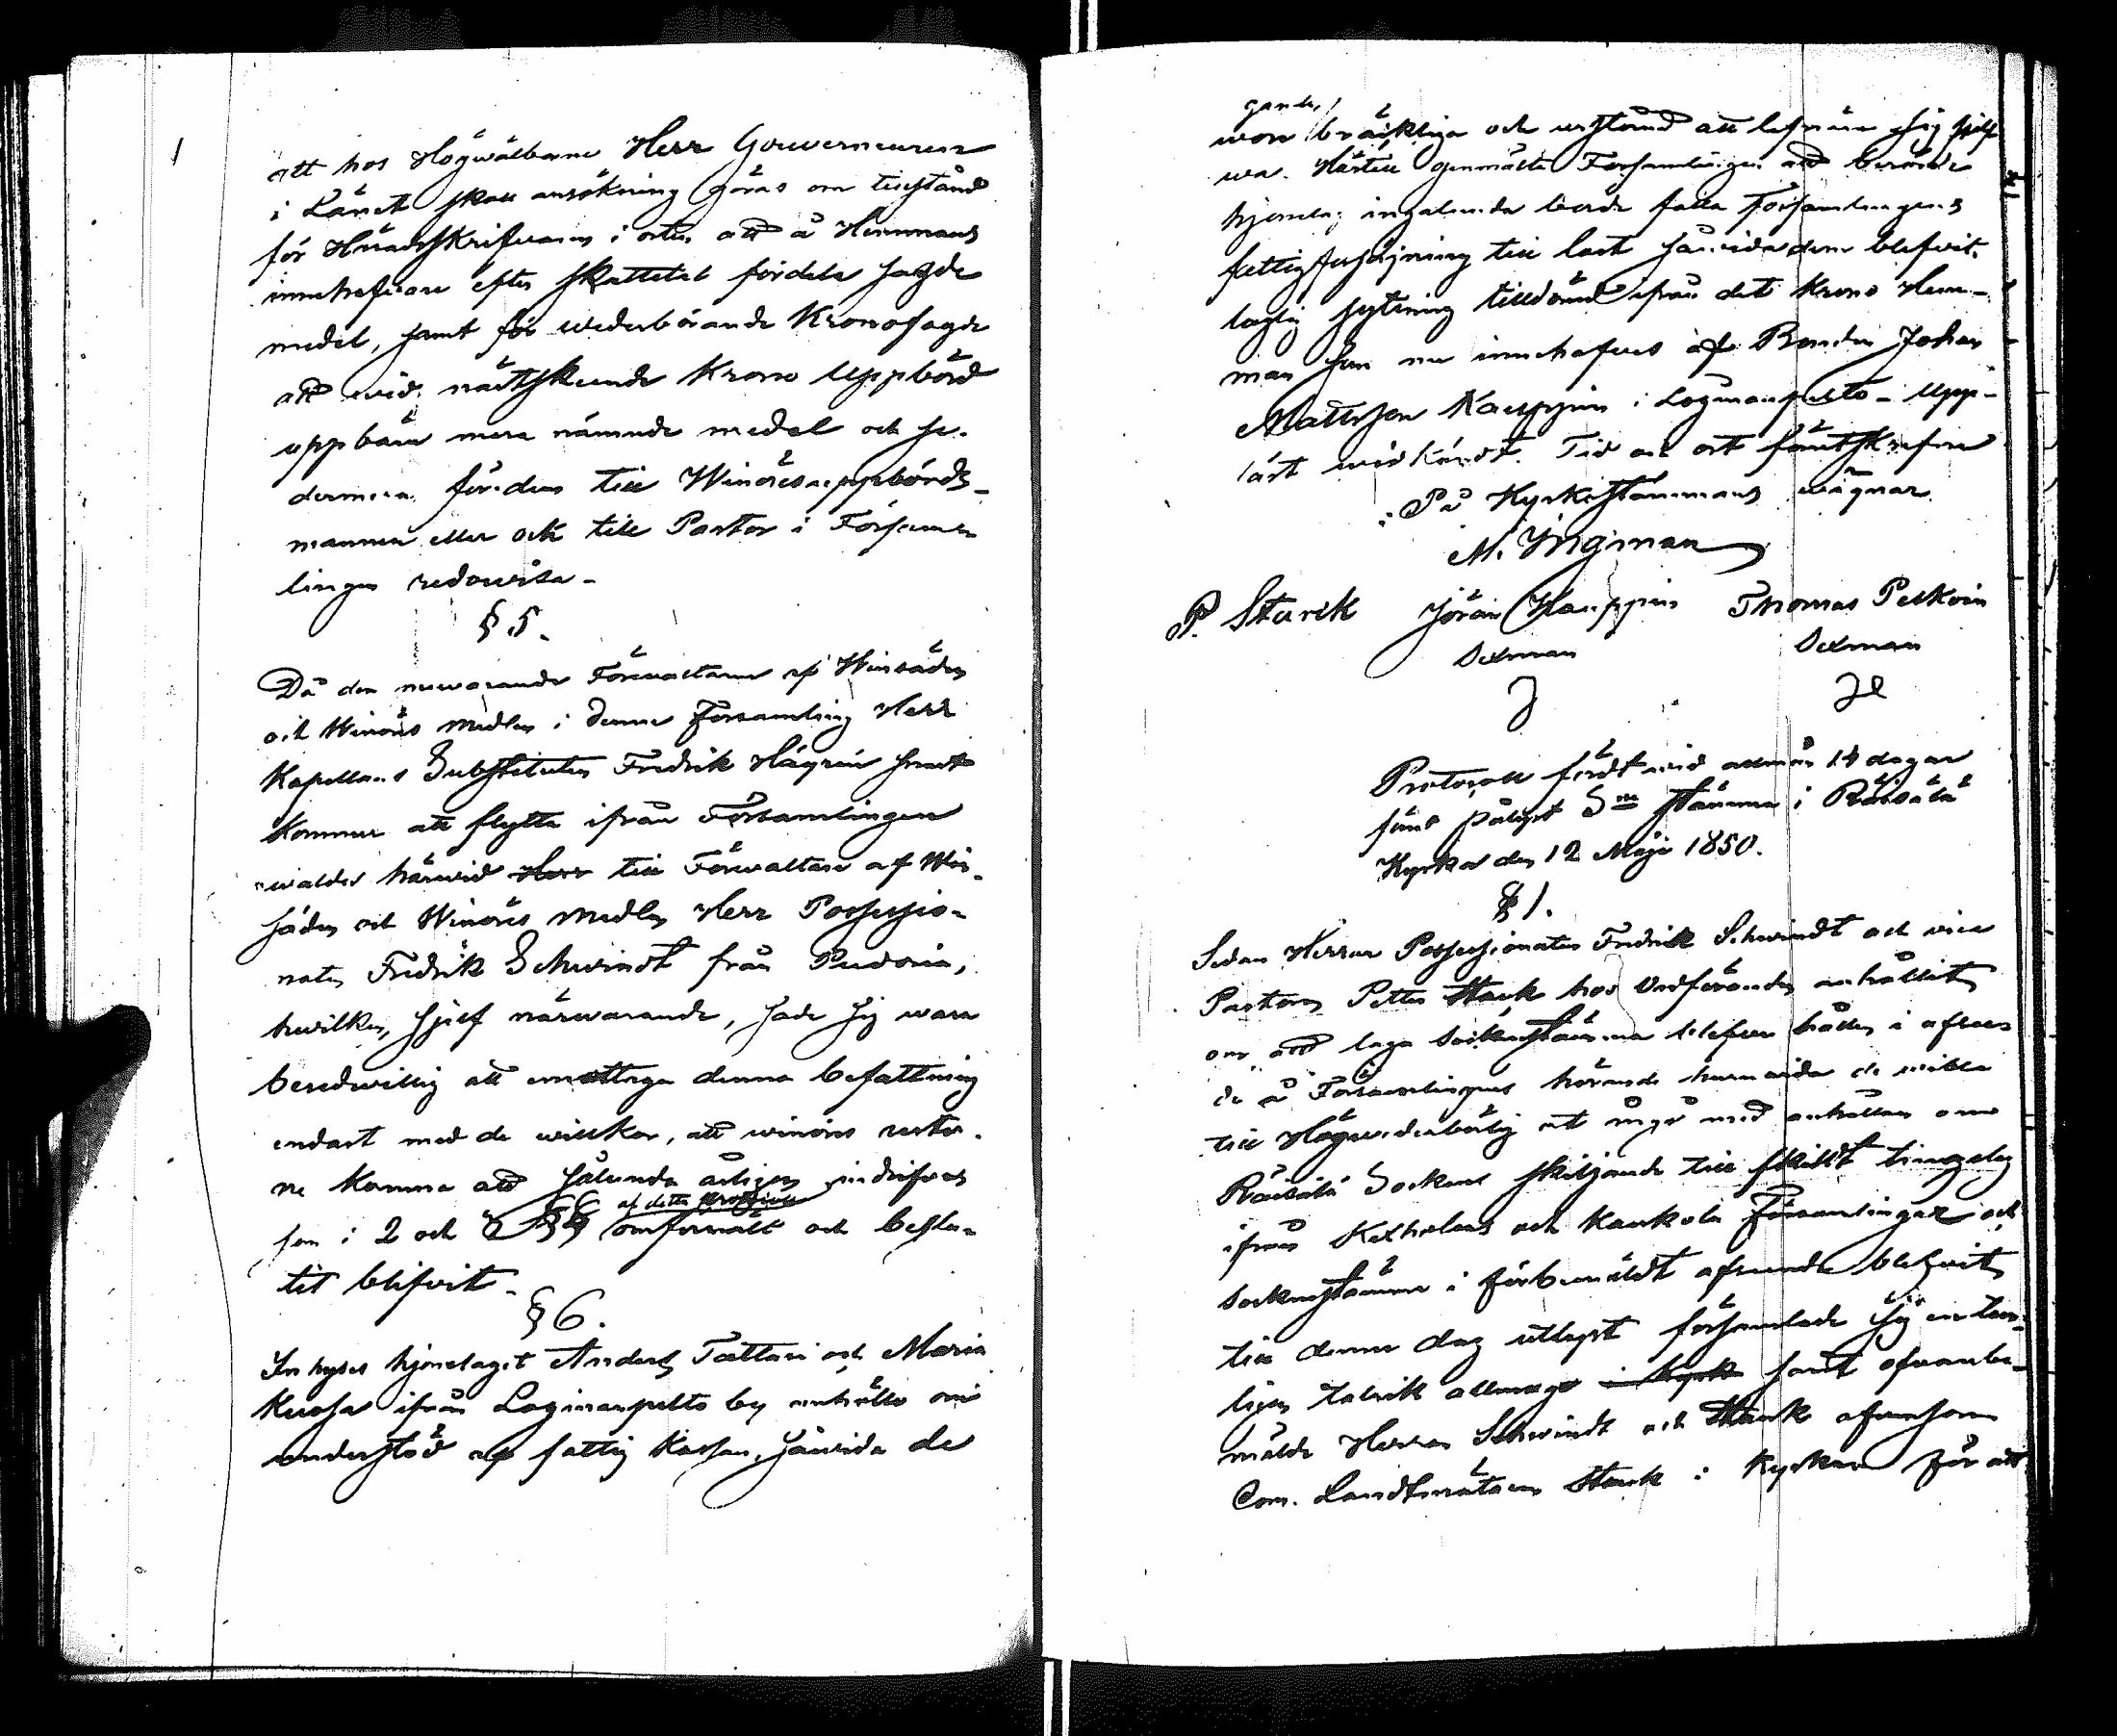 att hos Högwälborne Herr Gouverneuren
i Länet skall ansökning göras om tillstånd
för Häradsskrifvaren i orten att å Hemmans
innehafvare efter skattetal fördela sagde
medel, samt för wederbörande Kronofogde
att wid nästskeende Krono Uppbörd
uppbära mera nämnde medel och se-
dermera föredem till Winöresuppbörds-
mannen eller ock till Pastor i Församm-
lingen redowisa.
§ 5.
Då den nuwarande Förwaltaren af Winsäden
och Winöres medlen i denna Församling Herr
Kapellans Substituten Fredrik Hägrén snart
kommer att flytta ifrån Församlingen
waldes härwid Herr till Förwaltare af Win-
säden och Winöres medlen Herr Possessio-
naten Fredrik Schwindt från Pudoria,
hwilken, sjelf närwarande, sade sig wara
beredwillig att emottaga denna befattning
endast med de willkor, att winöres resto-
ne komma att sålunda årligen indrifvas
af detta protocoll
som i 2 och 3 §§ omförmält och beslu-
tit blifvit.
§ 6.
Inhyses hjonelaget Anders Tattari och Maria
Kuosa ifrån Logmanpelto by anhöllo om
understöd af fattig Kassan, såwida de
gamla,
woro bräckliga och urstånd att lifnära sig sjelf
wa. Härtill genmälte Församlingen att berörde
hjonelag ingalunda borde falla Församlingens
fattigförsörjning till last såwida dem blifvit
laglig sytning tilldömd ifrån det Krono Hem-
man som nu innehafves af Bonden Johan
Mattsson Kauppin i Logmanpelto – Upp-
läst widkändt. Tid och ort förutskrefne
På Kyrkostämmans wägnar.
M. Ingman
P. Starck Jöran Kauppin Thomas Peskoin
Sexman Sexman
Protocoll fördt wid allmän 14 dagar
förut pålyst Sne stämma i Räisälä
Kyrka den 12 Maji 1850.
§ 1.
Sedan Herrar Possessionaten Fredrik Schwindt och vice
Pastoren Petter Starck hos Ordföranden anhållit
om att laga Sockenstämma blefve hållen i afseen-
de å Församlingens hörande huruwida de wille
till Högwederbörlig ort ingå med anhållan om
Räisälä Sockens skiljande till skildt tingslag
ifrån Kexholms och Kaukola Församlingar och
sockenstämma i förbemäldt afseende blifvit
till denna dag utlyst församlade sig en tem-
ligen talrik allmoge i kyrk samt ofvanbe-
mälde Herrar Schwindt och Starck äfvensom
Com. Landtmätaren Starck i Kyrkan för att